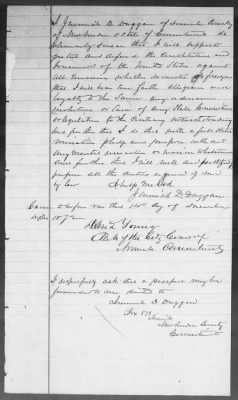 I Jeremiah D. Duggan of Norwich County
of New London & State of Connecticut do
solemnly swear that I will support
protect and defend the Constitution and
Government of the United States against
all enemies whether domestic or foreign
that I will bear true faith allegiance and
loyalty to the same any ordinance
Resolution or Law of any State Convention
or Legislature to the Contrary notwithstanding
and further that I do this with a full deter
mination pledge and purpose without
any mental reservation or evasion whatsoever
and further that I will well and faithfully
perform all the duties required of me
by law So help me God
Jeremiah D. Duggan
Sworn before me this day of December
A.D. 1872
Young
Clerk of the City Court of
Norwich Connecticut
I respectfully ask that a passport may be
forwarded to me directed to
Jeremiah D Duggan
Box 179
Norwich
New London County
Connecticut